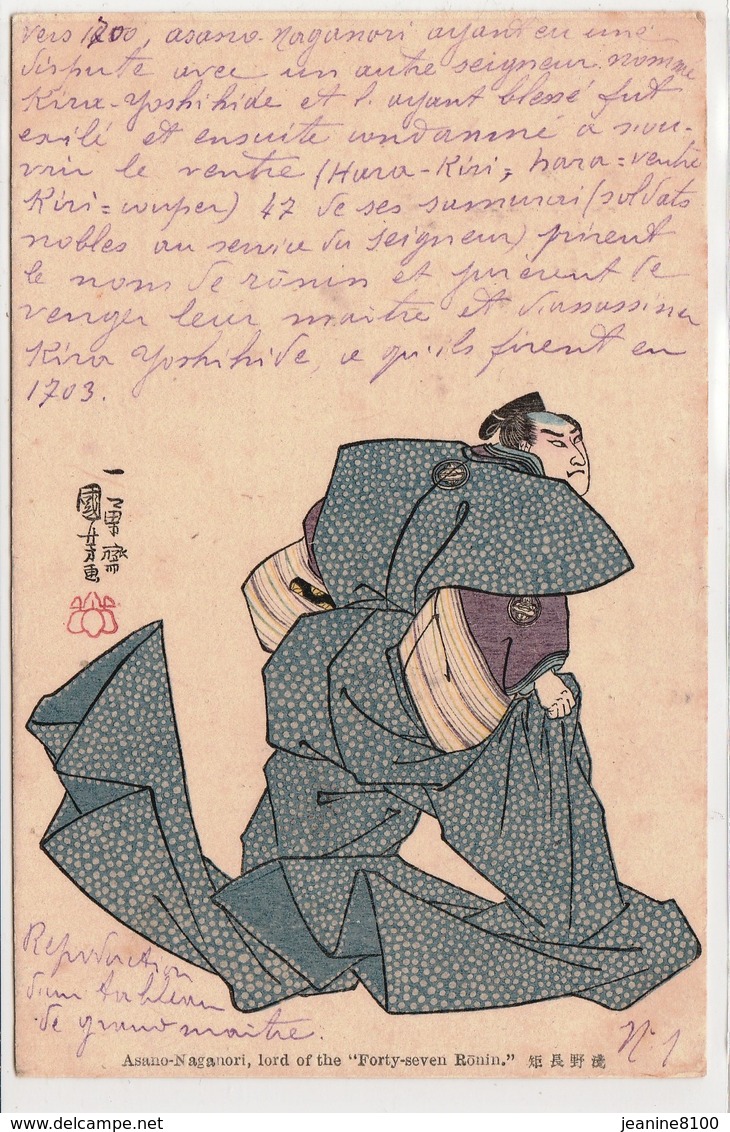 vers 1700, asano-naganori ayant eu une
dispute avec un autre seigneur nommé
Kira-Yoshihide et l'ayant blessé fut
exilé et ensuite condamné à s'ou-
vrir le ventre (Hara-Kiri, hara=ventre
Kiri=couper) 47 de ses samurai (soldats
nobles au service du seigneur) prirent
le nom de rōnin et jurèrent de
venger leur maitre et d'assassiner
Kira Yoshihide, ce qu'ils firent en
1703.
一勇齋
國芳画
Reproduction
d'un tableau
de grand maitre.
N. 1
Asano-Naganori, lord of the "Forty-seven Rōnin." 矩長野淺
jeanine8100